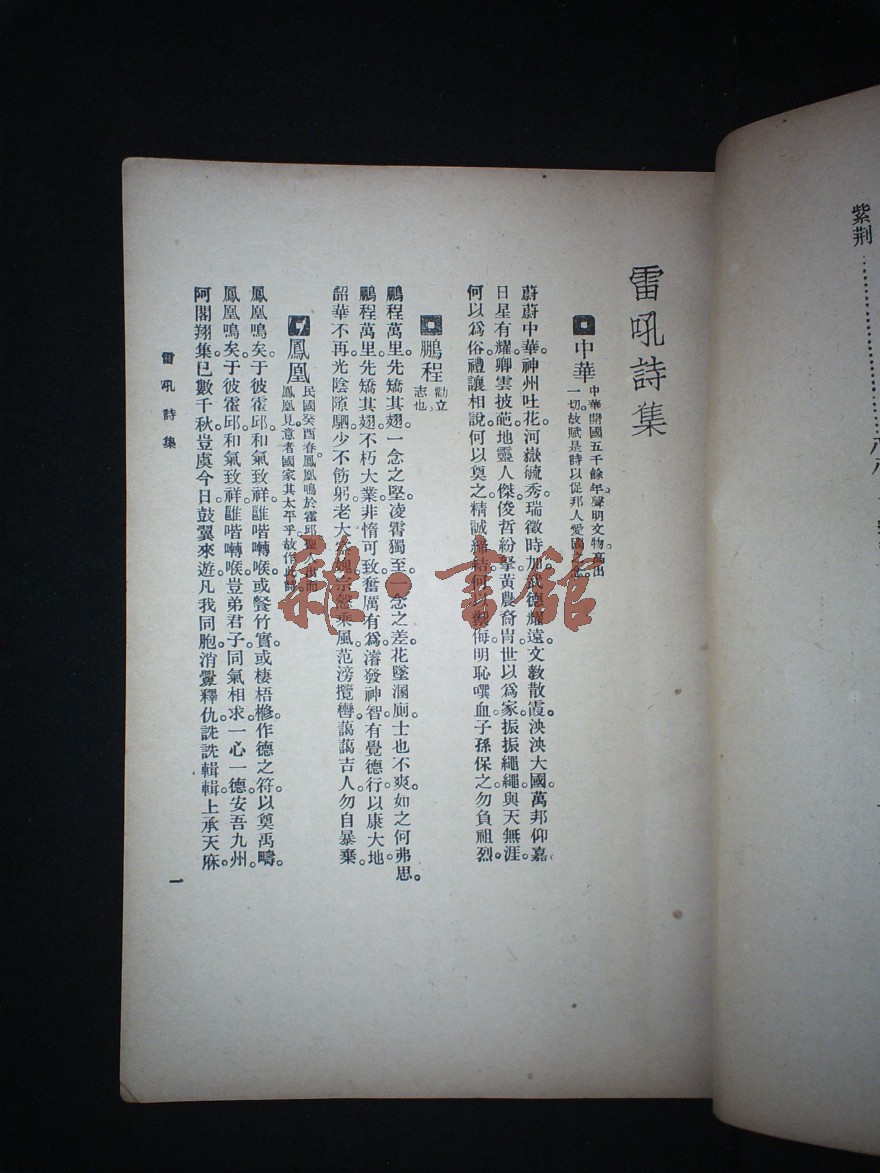 紫荆
雷吼詩集
中華 中華開國五千餘年。聲明文物。高出
一切。故賦是詩以促邦人愛國
蔚蔚中華。神州吐花。河嶽毓秀。瑞徵時加。武德耀遠。文教散霞。泱泱大國。萬邦仰嘉
日星有耀。卿雲披葩。地靈人傑。俊哲紛拏。黃農裔胄。世以爲家。振振繩繩。與天無涯。
何以爲俗。禮讓相說。何以奠之。精誠結。何以禦侮。明恥噀血。子孫保之。勿負祖烈。
鵬程 勸立
志也。
鵬程萬里。先矯其翅。一念之堅。凌霄獨至。一念之差。花墜溷廁。士也不爽。如之何弗思。
鵬程萬里。先矯其翅。不朽大業。非惰可致。奮厲有爲。濬發神智。有覺德行。以康大地
韶華不再。光陰隙駟。少不飭躬。老大。宗慤乘風。范滂攬轡。藹藹吉人。勿自暴棄。
鳳凰 民國癸酉春。鳳凰鳴於霍邱
鳳凰見。意者國家其太平乎。故作此
鳳凰鳴矣。于彼霍邱。和氣致祥。雝喈囀喉。或餐竹實。或棲梧樛。作德之符。以奠禹疇。
鳳凰鳴矣。于彼霍邱。和氣致祥。雝喈囀喉。豈弟君子。同氣相求。一心一德。安吾九州。
阿閣翔集。已數千秋。豈虞今日。鼓翼來遊。凡我同胞。消釁釋仇。詵詵輯輯。上承天庥。
雷吼詩集
一
雜·書館